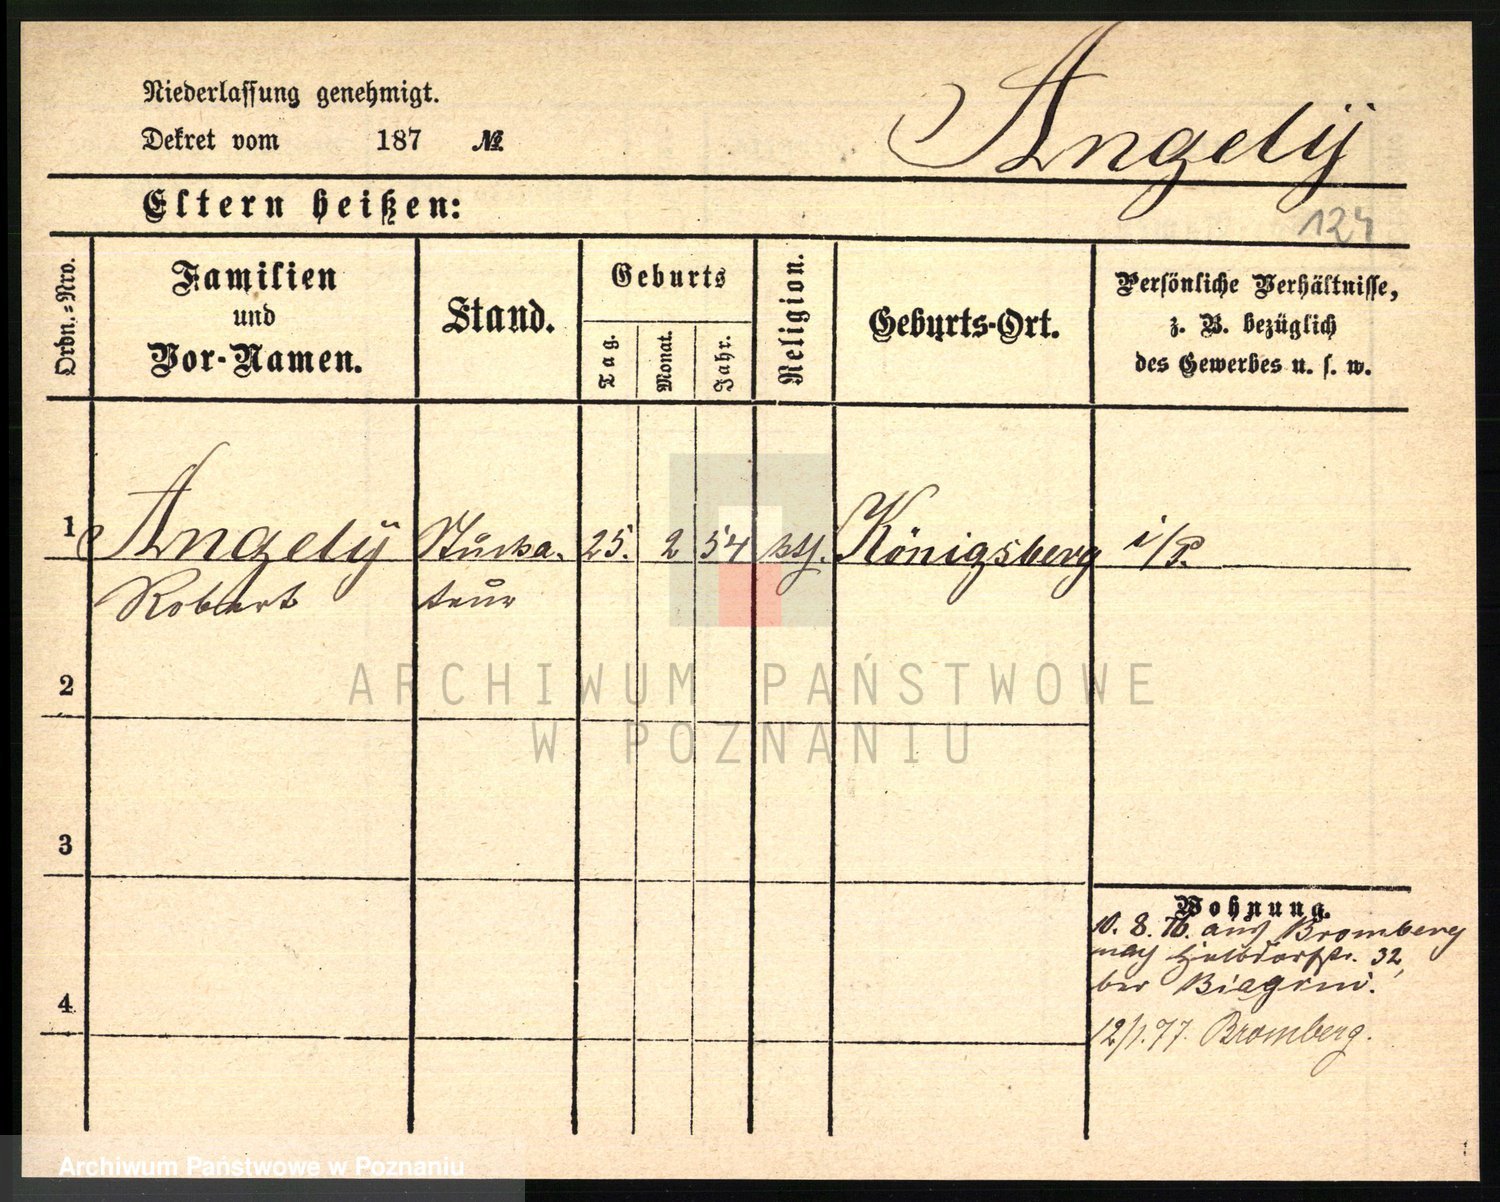 Niederlassung genehmigt.
Dekret vom 187 №
Angelÿ
Eltern heißen:
124
Ordn.=Nro.
Familien
und
Vor-Namen.
Stand.
Geburts
Tag.
Monat.
Jahr.
Religion.
Geburts-Ort.
Persönliche Verhältnisse,
z. B. bezüglich
des Gewerbes u. s. w.
1 Angelÿ Stucka- 25. 2 54 kth. Königsberg i/P.
Robert teur
2
3
4
Wohnung.
10. 8. 76. aus Bromberg
nach 32,
bei
12/1. 77. Bromberg.
ARCHIWUM PAŃSTWOWE
W POZNANIU
Archiwum Państwowe w Poznaniu